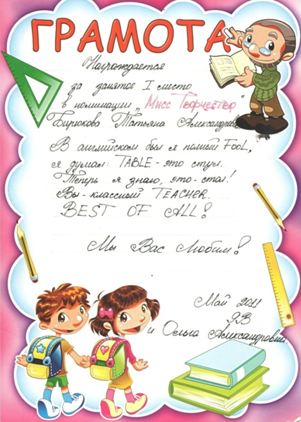 ГРАМОТА
Награждается
за занятое I место
в номинации "Мисс Творчество"
Бирюкова Татьяна Александровна
В английском был я полный FOOL,
я думал: TABLE - это стул.
Теперь я знаю, это - стол!
Вы - классный TEACHER.
BEST OF ALL!
Мы Вас Любим!
Май 2011
9В
и Ольга Александровна